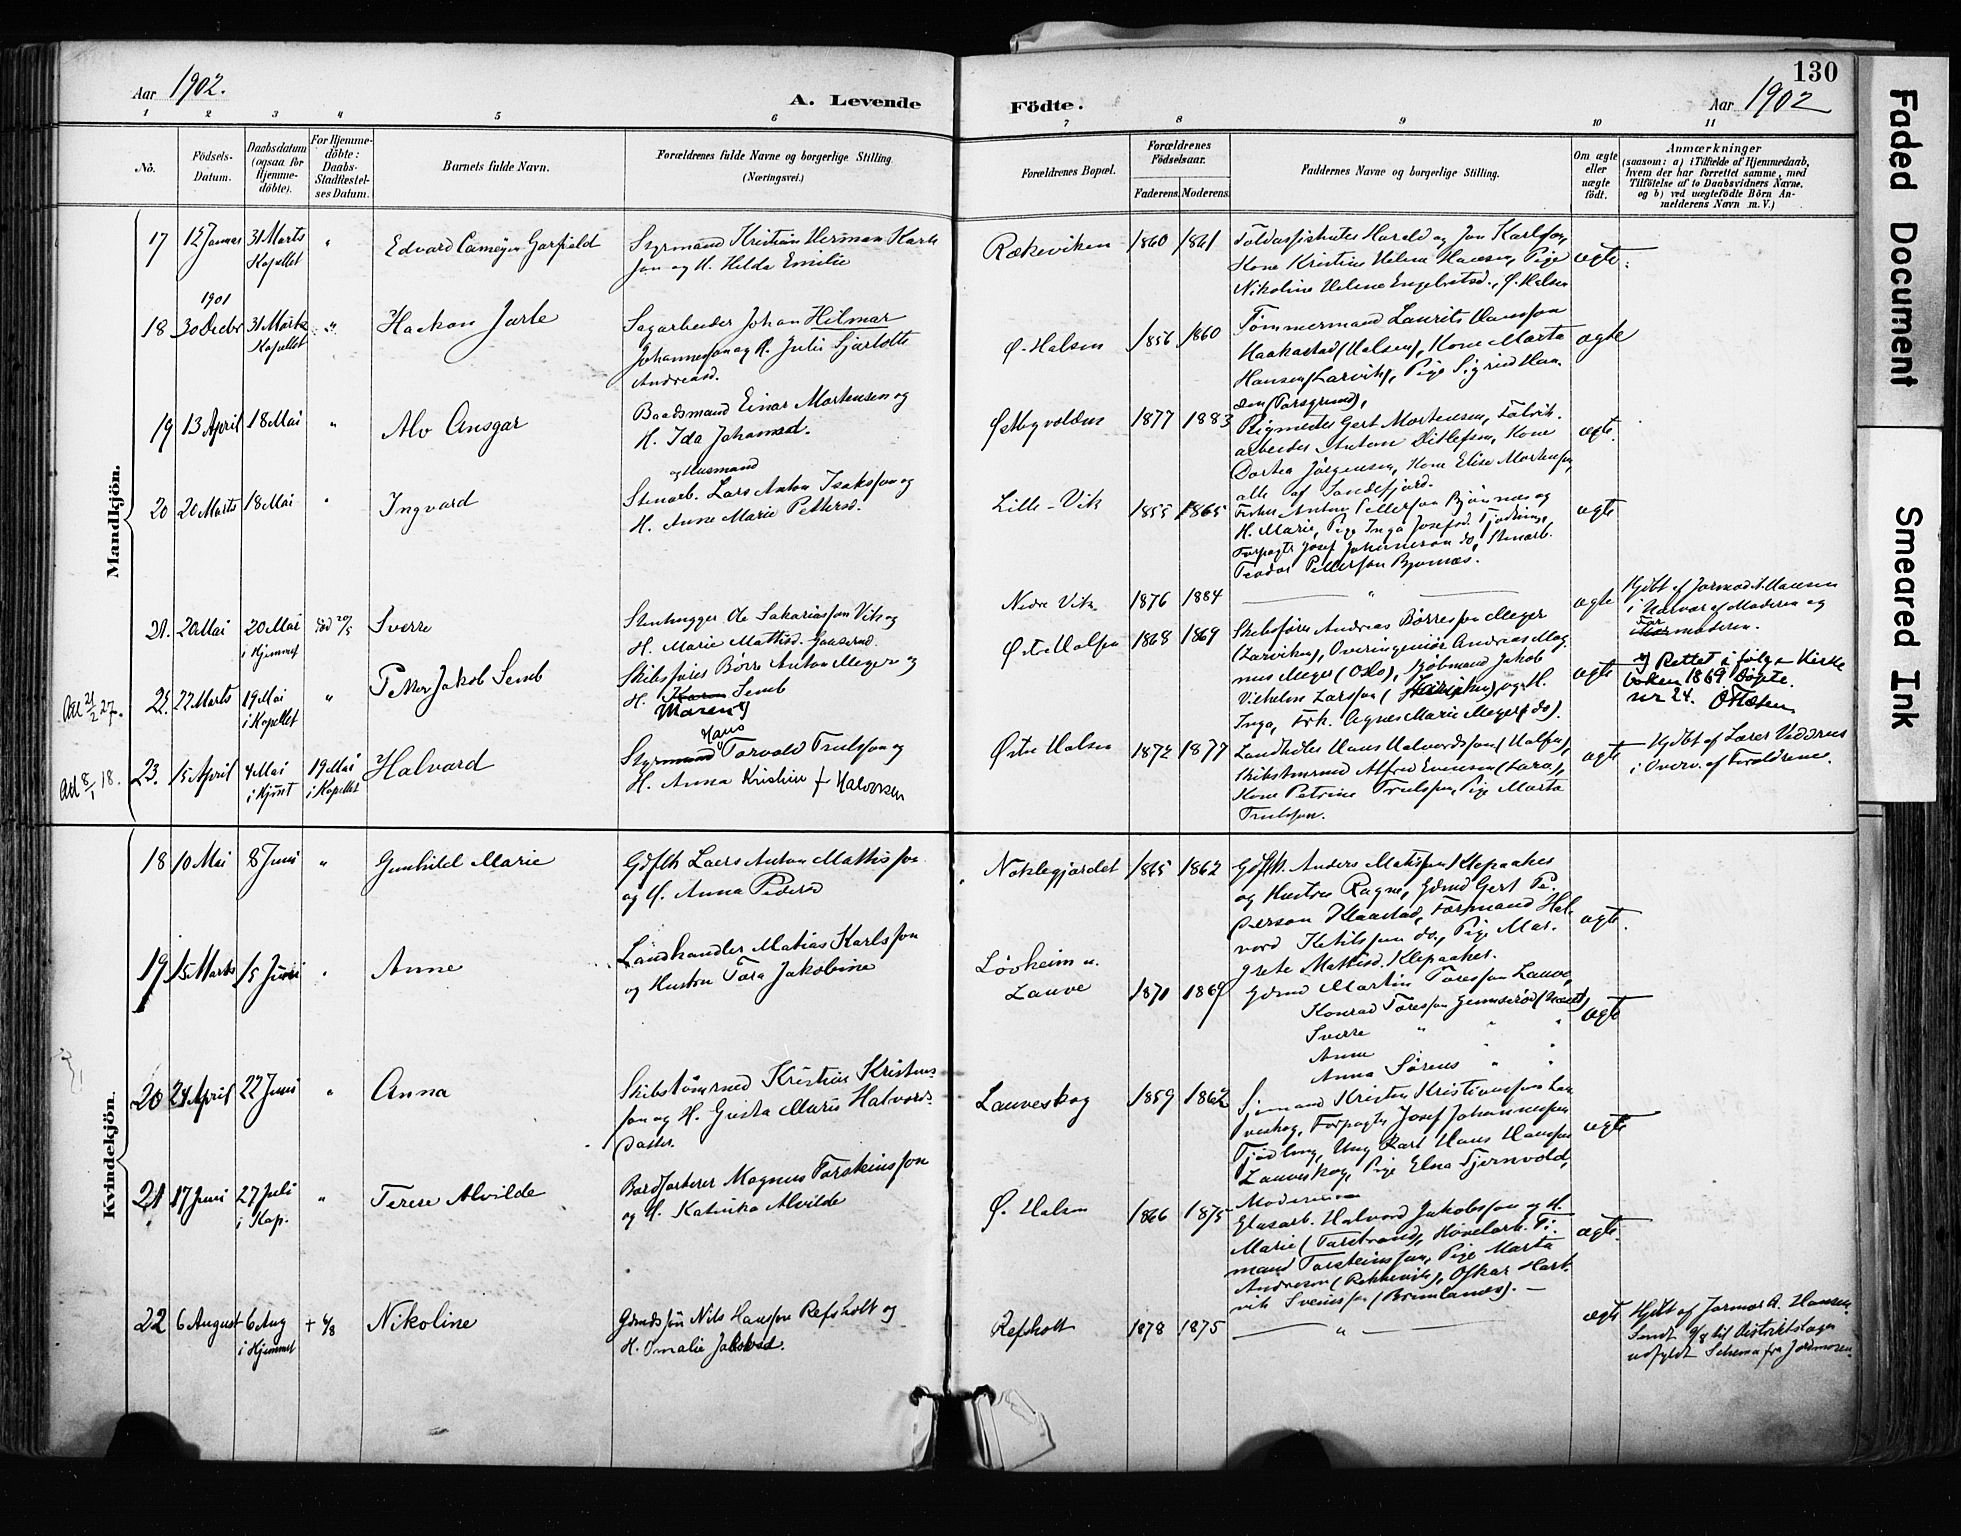 Aar 1902.
A. Levende
Födte.
Aar 1902
130
Faded Document
Smeared Ink
1 2 3 4 5 6 7 8 9 10 11
No.
Födsels-Datum.
Daabsdatum (ogsaa for Hjemme-döbte).
For Hjemme-döbte: Daabs-Stadfæstel-ses Datum.
Barnets fulde Navn.
Forældrenes fulde Navne og borgerlige Stilling.
(Næringsvei.)
Forældrenes Bopæl.
Forældrenes Födselsaar.
Faderens. Moderens.
Faddernes Navne og borgerlige Stilling.
Om ægte eller uægte födt.
Anmærkninger
(saasom: a) i Tilfælde af Hjemmedaab,
hvem der har forrettet samme, med
Tilföielse af to Daabsvidners Navne,
og b) ved uægtefödte Börn An-
melderens Navn m. V.)
Mandkjön.
17 12 Januar 31 Marts Kapellet " Edvard Cameyer Garfield
Styrmand Kristian Herman Karl-
son og H. Hilda Emilie
Rækeviken 1860 1861
Toldassistent Harald og Jon Karlson,
Kone Kristine Helene Hansen, Pige
Nikoline Helene Engebretsd., Ø. Halsen
ægte.
18 1901 30 Decbr 31 Marts Kapellet " Haakon Jarle
Sagarbeider Johan Hilmar
Johannesson og H. Julie Sjarlotte
Andreasd.
Ø-Halsen 1856 1860
Tömmermand Laurits Hansson
Haakastad (Halsen), Kone Marta
Hansen (Larvik), Pige Sigrid Han-
sen (Porsgrund),
ægte
19 13 April 18 Mai " Alv Ansgar
Baadsmand Einar Mortensen og
H. Ida Johansd.
Ø Mygvolden 1877 1883
Rigmester Gert Mortensen, Fabrik-
arbeider Anton Ditlefsen, Kone
Dortea Jörgensen, Kone Elise Mortensen,
alle af Sandefjord.
ægte.
20 20 Marts 18 Mai " Ingvard
og Husmand
Stenarb. Lars Anton Isaksson og
H. Anne Marie Pettersd.
Lille-Vik 1855 1865
Fisker Anton Pettersson Bjönnes og
H. Marie, Pige Inga Josefsd. Tjodling,
Forpagter Josef Johannesson do, Stenarb.
Teodor Pettersson Bjønnes.
ægte
21. 20 Mai 20 Mai i Hjemmet död 20/5 Sverre
Stenhugger Ole Sakariasson Vik og
H. Marie Mattisd. Gaaserød.
Nedre Vik. 1876 1884 "
ægte
Hjdbt af Jormod A. Hansen
i Nærvær af Moderen og
Farmoderen.
Att 21/2 27.
22. 22 Marts 19 Mai i Kapellet " Petter Jakob Semb
Skibsfører Børre Anton Meyer og
H. Karen Semb
Maren x)
Østre Halsen 1868 1869
Skibsfører Andreas Børresson Meyer
(Larviken), Overingeniør Andreas Mag-
nus Meyer (Oslo), Kjøbmand Jakob
Vilhelm Larsson og H.
Inga, Frk. Agnes Marie Meyer (do).
ægte
x) Rettet i følge Kirke
boken 1869 Døpte
nr 24.
Att 8/1 18.
23. 15 April 4 Mai i Hjemt 19 Mai i Kapellet Halvard
Hans
Styrmand Torvald Trulsson og
H. Anna Kristine f. Halvorsen
Østre Halsen 1872 1877
Landholder Hans Halvordsson (Halsen),
Skibstmrmd Alfred Evensen (Lara),
Kone Petrine Trulssen, Pige Marta
Trulsson.
ægte
Hjdbt af Lærer
i Overv. af Forældrene.
Kvindekjön.
18 10 Mai 8 Juni " Gunhild Marie
Laers Anton Mattisson
og H. Anna Pedersd
Noklegjordet 1865 1862
Anders Matisson Klepaaker
og Hustru Ragne, Gdmd Gert Pe-
dersson Haastad, Formand Hal-
vord Ketilsson do., Pige Mar-
grete Mattisd. Klepaaker.
ægte.
19 15 Marts 15 Juni " Anne
Landhandler Matias Karlsson
og Hustru Tora Jakobine
Lövheim u.
Lauve 1871 1869
Gdmd Martin Toresson Lauve,
Konrad Toresson
Sverre " "
Anne " "
Anna Sörens " "
ægte
20 24 April 22 Juni " Anna
Skibstömrmd Kristian Kristens-
son og H. Gusta Marie Halvords-
datter.
Lauveskog 1859 1862
Sjömand Kristen Kristiansson Lau-
veskog, Forpagter Josef Johannessen
Tjodling, Ung Karl Hans Hansson
Lauveskog, Pige Elna Tjernvold,
Moderen
ægte
21 17 Juni 27 Juli i Kap. " Terese Alvilde
Bordforhører Magnus Torsteinsson
og H. Katinka Alvilde
Ø. Halsen 1866 1875
Glasarb. Halvord Jakobsson og H.
Marie (Torstrand), Hövelarb. Ti-
mand Torsteinsson, Pige Marta
Andreson (Rækkevik), Oskar Hart-
vik Sveinsson (Brunlanes). —
ægte.
22 6 August 6 Aug i Hjemmet + 6/8 Nikoline
Gmdssön Nils Hansson Refsholt og
H. Omalie Jakobsd.
Refsholt 1878 1875 "
ægte
Hjdbt af Jormor A. Hansen.
Sendt 9/8 til Distriktslægen
udfyldt Schema fra Jordmoren.